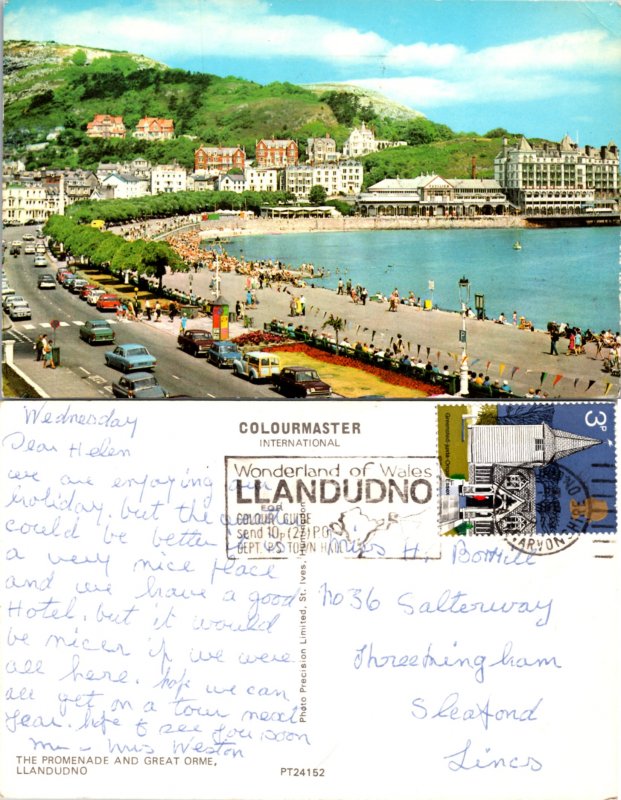 Wednesday
Dear Helen
we are enjoying our
holiday, but the
could be better
a very nice place
and we have a good
Hotel, but it would
be nicer if we were
all here. hope we can
all get on a tour next
year. hope to see you soon
Mr - Mrs Weston
THE PROMENADE AND GREAT ORME,
LLANDUDNO
COLOURMASTER
INTERNATIONAL
Wonderland of Wales
LLANDUDNO
FOR
COLOUR GUIDE
send 10p (2/-) P.O.
DEPT. P.S TOWN HALL
Photo Precision Limited, St. Ives, Huntingdon
PT24152
3p
Miss H.
No 36 Salterway
Threeekingham
Sleaford
Lincs